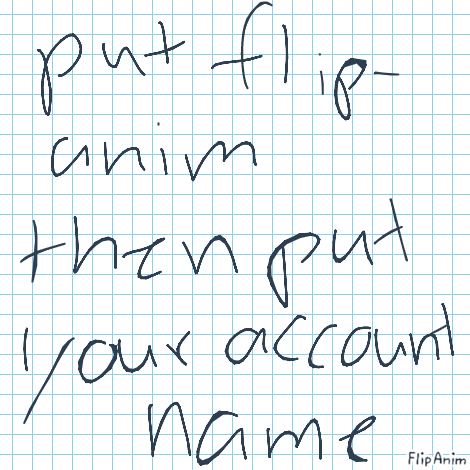 put flip-
anim
then put
your account
name
FlipAnim